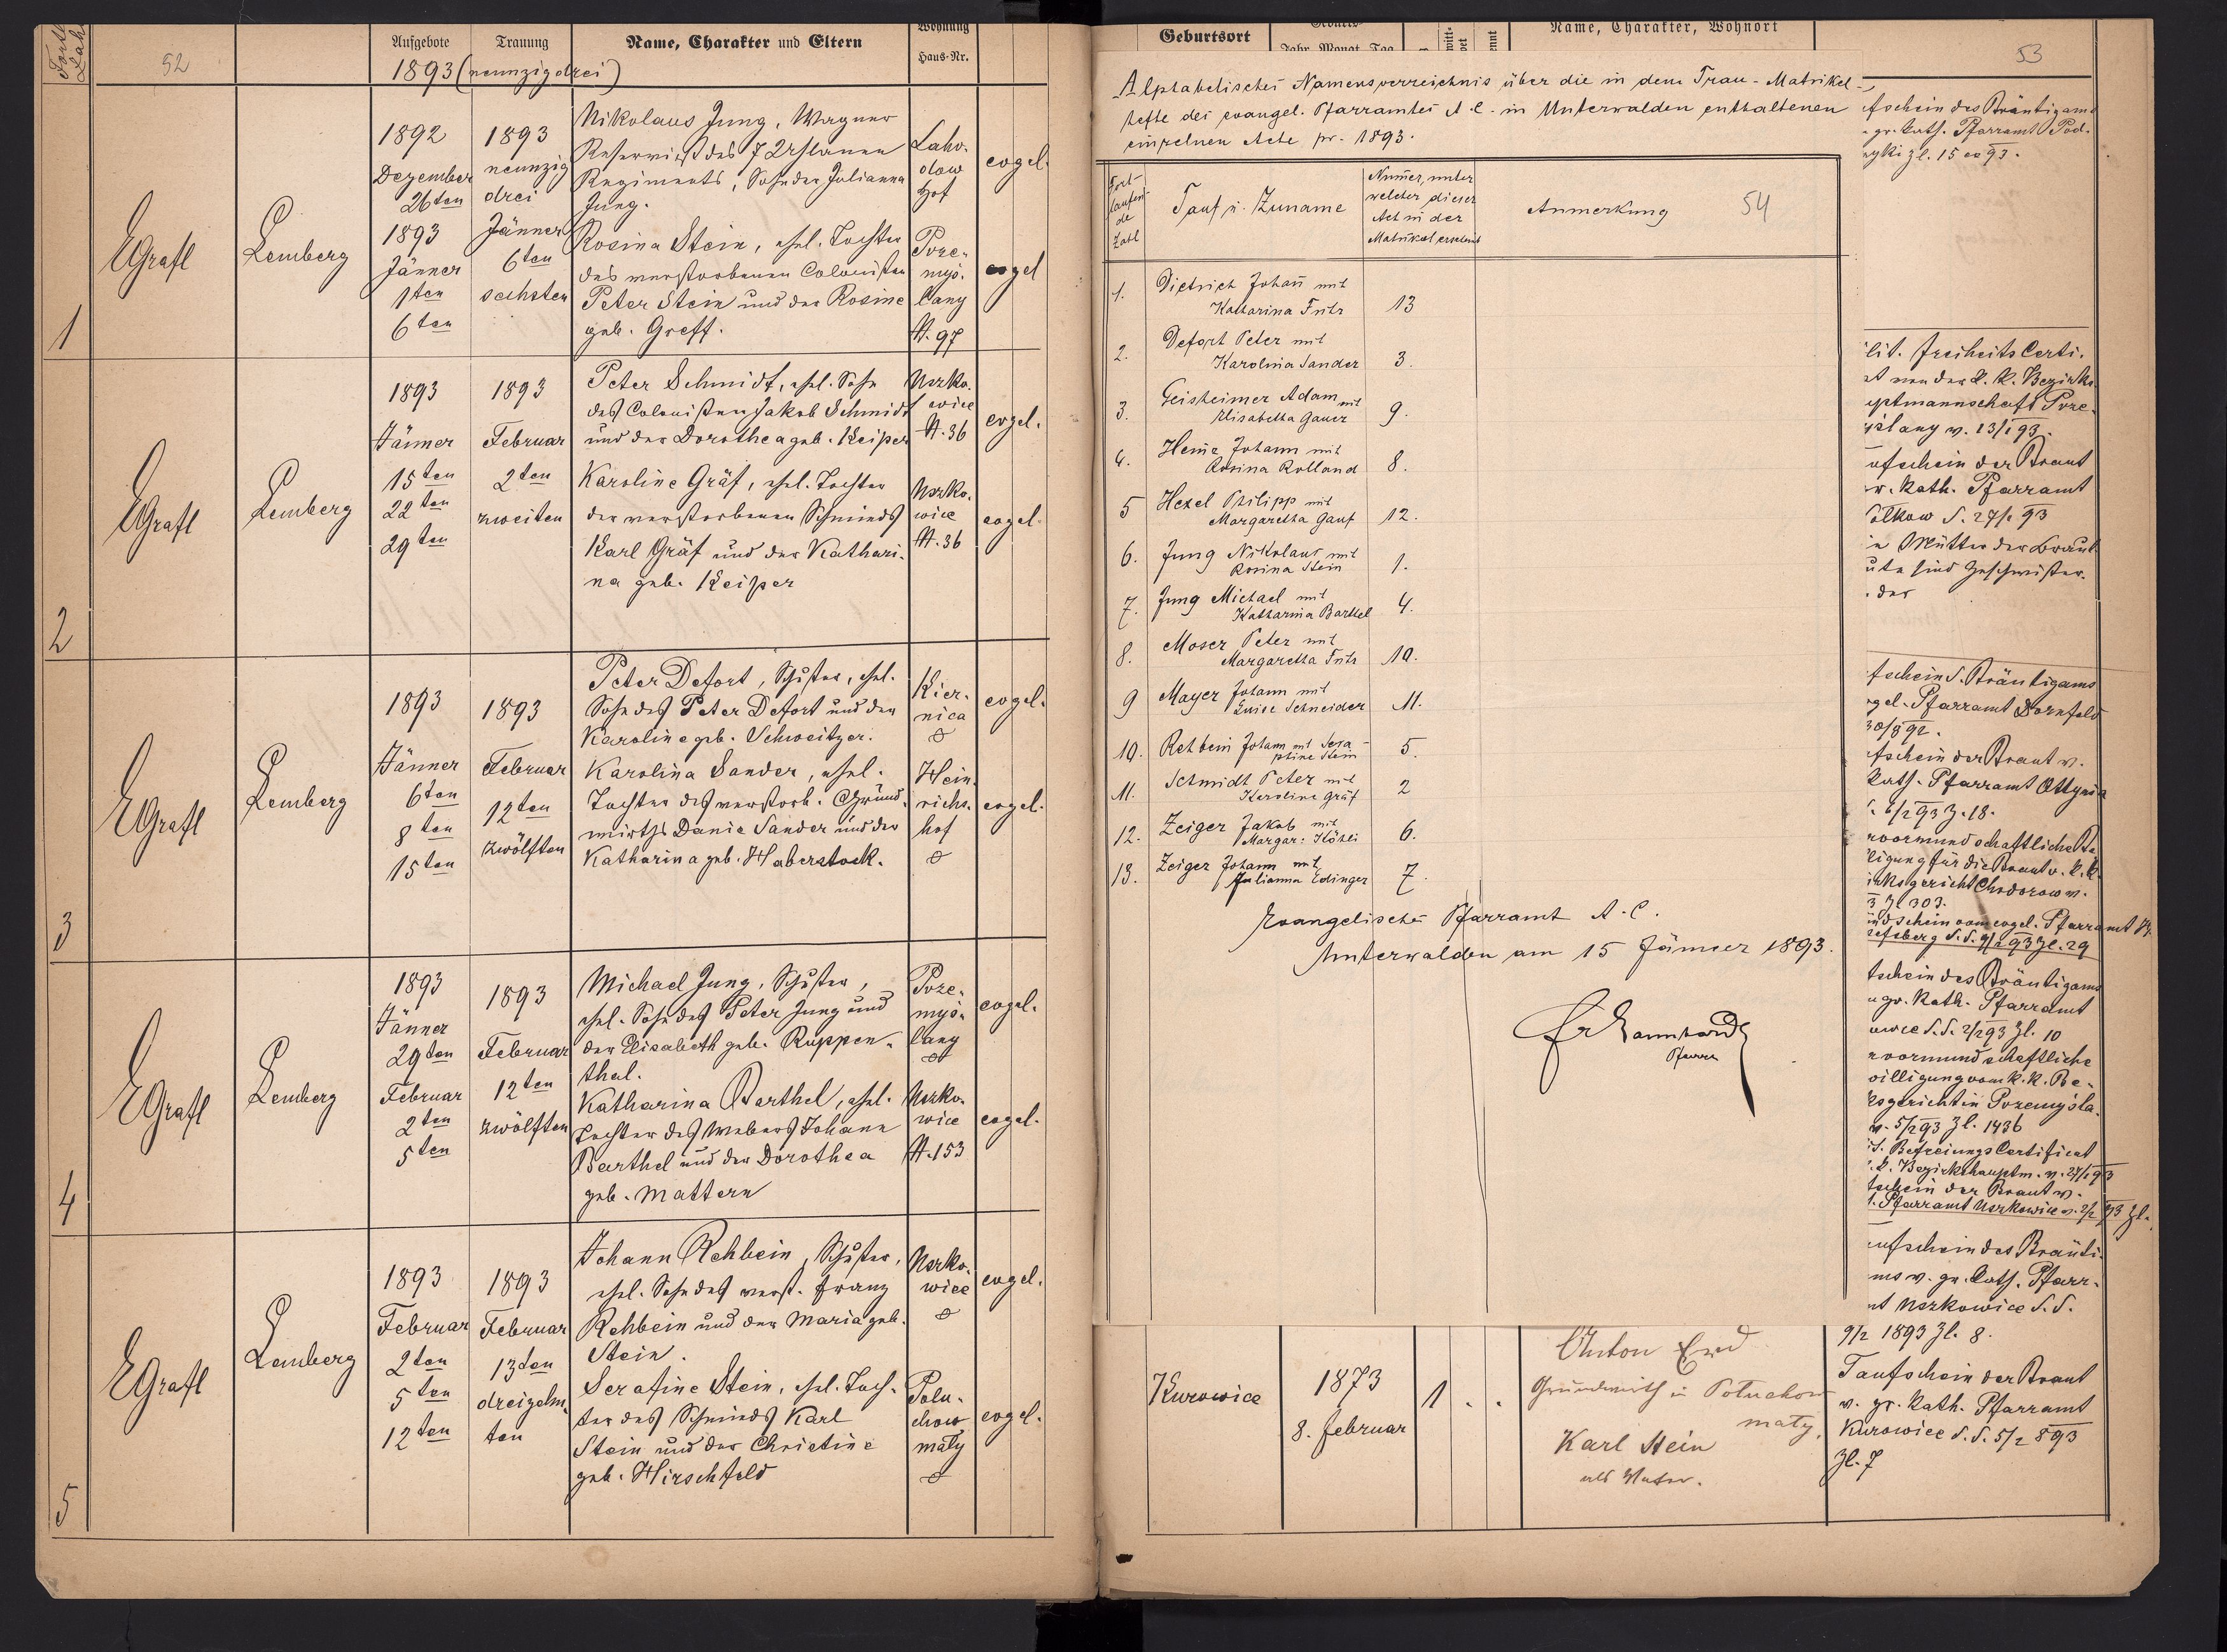 Fortl.
Zahl
52
Aufgebote
Trauung
Name, Charakter und Eltern
Wohnung
Haus-Nr.
1893 (neunzigdrei)
1
EGrafl
Lemberg
1892
Dezember
26ten
1893
Jänner
1ten
6ten
1893
neunzig
drei
Jänner
6ten
sechsten
Nikolaus Jung, Wagner
Reservist des 7 Uhlanen
Regiments, Sohn der Julianna
Jung.
Laho-
dow
Hof
evgel.
Rosina Stein, ehel. Tochter
des verstorbenen Colonisten
Peter Stein und der Rosine
geb. Greff.
Prze-
myś-
lany
N. 97
evgel
2
EGrafl
Lemberg
1893
Jänner
15ten
22ten
29ten
1893
Februar
2ten
zweiten
Peter Schmidt, ehel. Sohn
des Colonisten Jakob Schmidt
und der Dorothea geb. Keiper
Uszko-
wice
N. 36
evgel.
Karoline Gräf, ehel. Tochter
des verstorbenen Schmieds
Karl Gräf und der Kathari-
na geb. Keiper
Uszko-
wice
N. 36
evgel.
3
EGrafl
Lemberg
1893
Jänner
6ten
8ten
15ten
1893
Februar
12ten
zwölften
Peter Defort, Schuster, ehel.
Sohn des Peter Defort und der
Karoline geb. Schweitzer.
Kier-
nica
evgel.
Karolina Sander, ehel.
Tochter des verstorb. Grund-
wirths Sander und der
Katharina geb. Haberstock.
Hein-
richs-
hof
evgel.
4
EGrafl
Lemberg
1893
Jänner
29ten
Februar
2ten
5ten
1893
Februar
12ten
zwölften
Michael Jung, Schuster,
ehel. Sohn des Peter Jung und
der Elisabeth geb. Ruppen-
thal.
Prze-
myś-
lany
evgel.
Katharina Barthel, ehel.
Tochter des Webers Johann
Barthel und der Dorothea
geb. Mattern
Uszko-
wice
N. 153
evgel.
5
EGrafl
Lemberg
1893
Februar
2ten
5ten
12ten
1893
Februar
13ten
dreizehn-
ten
Johann Rehbein, Schuster,
ehel. Sohn des verst. Franz
Rehbein und der Maria geb.
Stein.
Uszko-
wice
evgel.
Serafine Stein, ehel. Toch-
ter des Schmieds Karl
Stein und der Christine
geb. Hirschfeld
Polu-
chow
mały
evgel.
Geburtsort
Jahr Monat Tag
Name, Charakter, Wohnort
53
Alphabetisches Namensverzeichnis über die in dem Trau-Matrikel-
hefte des evangel. Pfarramtes A.C. in Unterwalden enthaltenen
einzelnen Acte pr. 1893.
Fort-
laufen-
de
Zahl
Tauf u. Zuname
Numer, unter
welcher dieser
Act in der
Matrikel erscheint
Anmerkung
54
1. Dietrich Johann mit
Katharina Fritz 13
2. Defort Peter mit
Karolina Sander 3.
3. Geisheimer Adam mit
Elisabetha Gauer 9.
4. Heinz Johann mit
Rosina Rolland 8.
5 Hexel Philipp mit
Margaretha Gauf 12.
6. Jung Nikolaus mit
Rosina Stein 1.
7. Jung Michael mit
Katharina Barthel 4.
8. Moser Peter mit
Margaretha Fritz 10.
9 Mayer Johann mit
Luise Schneider 11.
10. Rehbein Johann mit Sera-
phine Stein 5.
11. Schmidt Peter mit
Karoline Gräf 2
12. Zeiger Jakob mit
Margar: Köhli 6.
13. Zeiger Johann mit
Julianna Edinger 7.
Evangelisches Pfarramt A.C.
Unterwalden am 15 Jänner 1893.
Pfarrer
fschein des Bräutigams
gr. kath. Pfarramt Pod-
zl. 15 ex 93.
lit. Freiheits Certi-
at von der k. k. Bezirks-
uptmannschaft Prze-
yślany v. 13/1 93.
ufschein der Braut
r. kath. Pfarramt
27/1 93
e Mütter der Braut-
ute sind Geschwister-
der
fschein d. Bräutigams
gel. Pfarramt Dornfeld
30/8 92.
fschein der Braut v.
kath. Pfarramt Ottynia
6/2 93 Z. 18.
rvormundschaftliche Be
ligung für die Braut v. k. k.
irksgericht Chodorow v.
3 Zl 303.
ündschein vom evgel. Pfarramt
93 Zl. 29
fschein des Bräutigams
gr. kath. Pfarramt
owice d. d. 2/2 93 Zl. 10
rvormundschaftliche
willigung vom k. k. Be-
ksgericht in Przemyśla-
v. 5/2 93 Zl. 1436
Befreiungs Certificat
k. Bezirkshauptm. v. 27/1 93
fschein der Braut v.
Pfarramt Uszkowice v. 2/2 93 Zl.
ufschein des Bräuti-
ms v. gr. kath. Pfarr-
mt Uszkowice d. d.
9/2 1893 Zl. 8.
Taufschein der Braut
v. gr. kath. Pfarramt
Kurowice d. d. 5/2 893
Zl. 7
Kurowice
1873
8. Februar
1
Anton
Grundwirth in Poluchow
mały,
Karl Stein
als Vater.